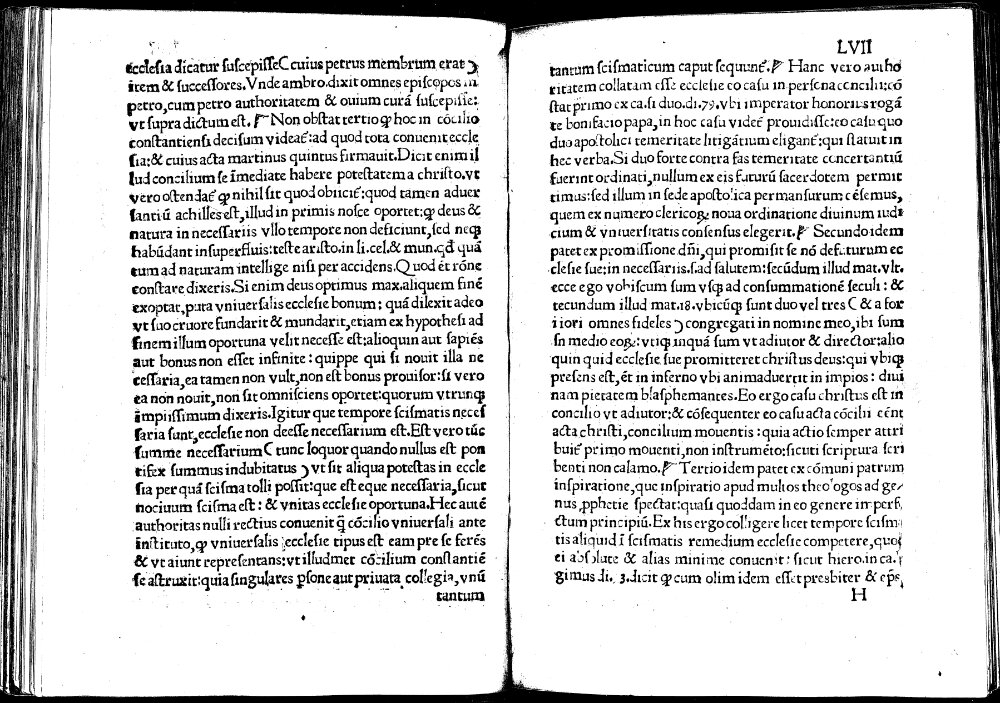 ecclesia dicatur suscepisse C cuius petrus membrum erat Ɔ
item & successores. Vnde ambro. dixit omnes episcopos in
petro, cum petro authoritatem & ouium curā suscepisse:
vt supra dictum est. Non obstat tertio ꝙ hoc in cōcilio
constantiensi decisum videat᷑: ad quod tota conuenit eccle
sia: & cuius acta martinus quintus firmauit. Dicit enim il
lud concilium se īmediate habere potestatem a christo. vt
vero ostendat᷑ ꝙ nihil sit quod obiicit᷑: quod tamen aduer
santiū achilles est, illud in primis nosce oportet: ꝙ deus &
natura in necessariis vllo tempore non deficiunt, sed neqꝫ
habūdant in superfluis: teste aristo. in li. cel. & mun. qd̄ quā
tum ad naturam intellige nisi per accidens. Quod ēt rōne
constare dixeris. Si enim deus optimus max. aliquem finē
exoptat, puta vniuersalis ecclesie bonum: quā dilexit adeo
vt suo cruore fundarit & mundarit, etiam ex hypothesi ad
finem illum oportuna velit necesse est; alioquin aut sapiēs
aut bonus non esset infinite: quippe qui si nouit illa ne
cessaria, ea tamen non vult, non est bonus prouisor: si vero
ea non nouit, non sit omnisciens oportet: quorum vtrunqꝫ
impiissimum dixeris. Igitur que tempore scismatis neces
saria sunt, ecclesie non deesse necessarium est. Est vero tūc
summe necessarium C tunc loquor quando nullus est pon
tifex summus indubitatus Ɔ vt sit aliqua potestas in eccle
sia per quā scisma tolli possit: que est eque necessaria, sicut
nociuum scisma est: & vnitas ecclesie oportuna. Hec autē
authoritas nulli rectius conuenit q̄ cōcilio vniuersali ante
instituto, ꝙ vniuersalis ecclesie tipus est eam pre se ferēs
& vt aiunt representans: vt illudmet cōcilium constantiē
se astruxit: quia singulares ꝑsone aut priuata collegia, vnū
tantum
LVII
tantum scismaticum caput sequunt᷑. Hanc vero autho
ritatem collatam esse ecclesie eo casu in persona concilii: cō
stat primo ex ca. si duo. di. 79. vbi imperator honorius rogā
te bonifacio papa, in hoc casu videt᷑ prouidisse: eo casu quo
duo apostolici temeritate litigātium eligant᷑: qui statuit in
hec verba. Si duo forte contra fas temeritate concertantiū
fuerint ordinati, nullum ex eis futurū sacerdotem permit
timus: sed illum in sede apostolica permansurum cēsemus,
quem ex numero clericoꝝ noua ordinatione diuinum iudi
cium & vniuersitatis consensus elegerit. Secundo idem
patet ex promissione dn̄i, qui promisit se nō defuturum ec
clesie sue: in necessariis. s. ad salutem: secūdum illud mat. vlt.
ecce ego vobiscum sum vsqꝫ ad consummationē seculi: &
secundum illud mat. 18. vbicūqꝫ sunt duo vel tres C & a for
tiori omnes fideles Ɔ congregati in nomine meo, ibi sum
in medio eoꝝ: vtiqꝫ inquā sum vt adiutor & director: alio
quin quid ecclesie sue promitteret christus deus: qui vbiqꝫ
presens est, ēt in inferno vbi animaduertit in impios: diui
nam pietatem blasphemantes. Eo ergo casu christus est in
concilio vt adiutor: & cōsequenter eo casu acta cōcilii cēnt
acta christi, concilium mouentis: quia actio semper attri
buit᷑ primo mouenti, non instrumēto: sicuti scriptura scri
benti non calamo. Tertio idem patet ex cōmuni patrum
inspiratione, que inspiratio apud multos theologos ad ge
nus ꝓphetie spectat: quasi quoddam in eo genere imperfe
ctum principiū. Ex his ergo colligere licet tempore scisma
tis aliquid ī scismatis remedium ecclesie competere, quod
ei absolute & alias minime conuenit: sicut hiero. in ca.
gimus di. 3. dicit ꝙ cum olim idem esset presbiter & ep̄s,
H